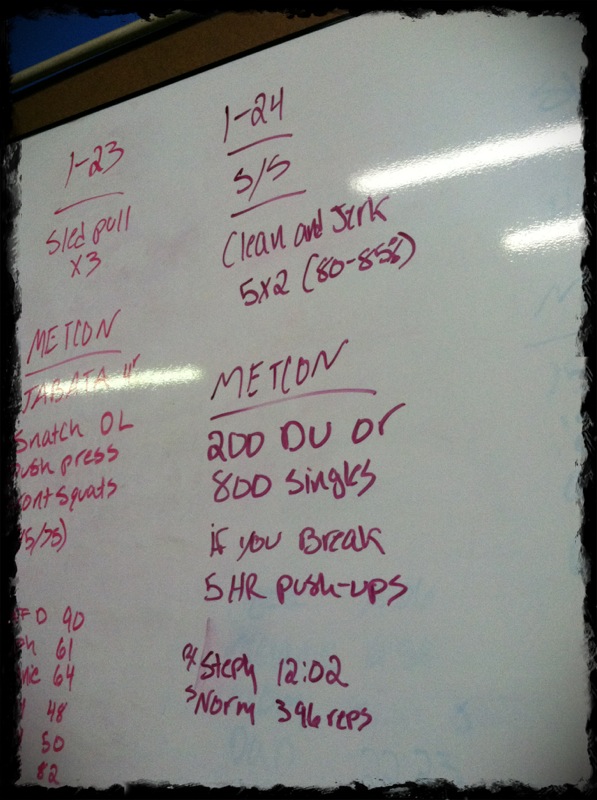 1-23
Sled pull
x3
METCON
TABATA
Snatch DL
push press
ont squats
5/35)
90
61
64
48
50
82
1-24
S/S
Clean and Jerk
5x2 (80-85%)
METCON
200 DU or
800 singles
if you Break
5 HR push-ups
Rx Steph 12:02
s Norm 396 reps